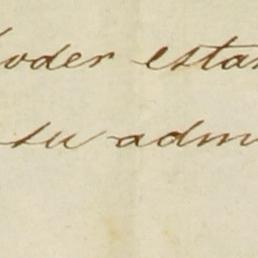 poder esta
su adm